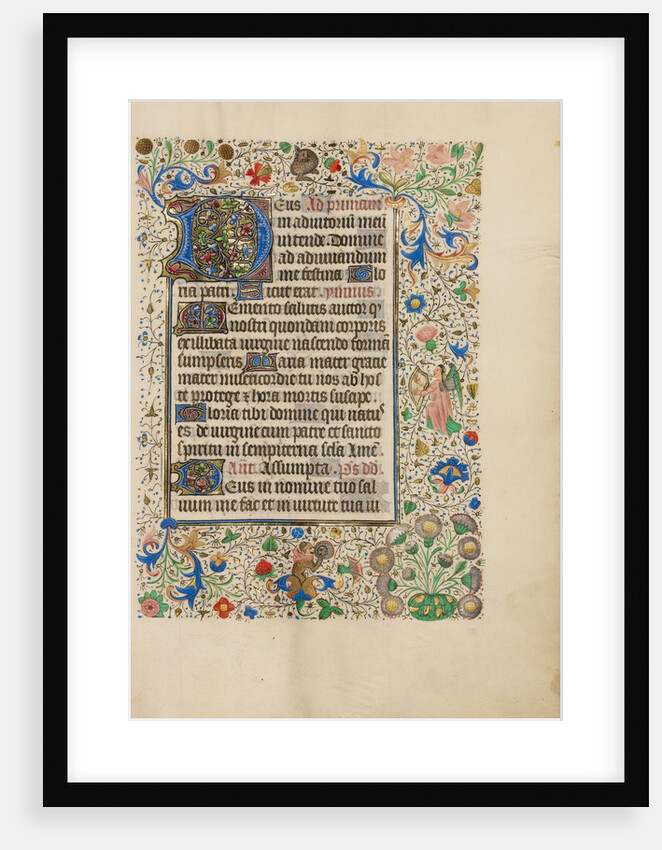 Deus Ad primam
in adiutoriu meu
intende. Domine
ad adiuuandum
me festina Glo
ria patri. Sicut erat. ymnus.
Memento salutis auctor q
nostri quondam corporis
ex illibata uirgine nascendo formā
sumpseris Maria mater gracie
mater misericordie tu nos ab hos
te protege & hora mortis suscipe.
Gloria tibi domine qui natus
es de uirgine cum patre et sancto
spiritu in sempiterna secla Ame.
Ant. Assumpta. Ps dd
Deus in nomine tuo sal
uum me fac et in uirtute tua iu